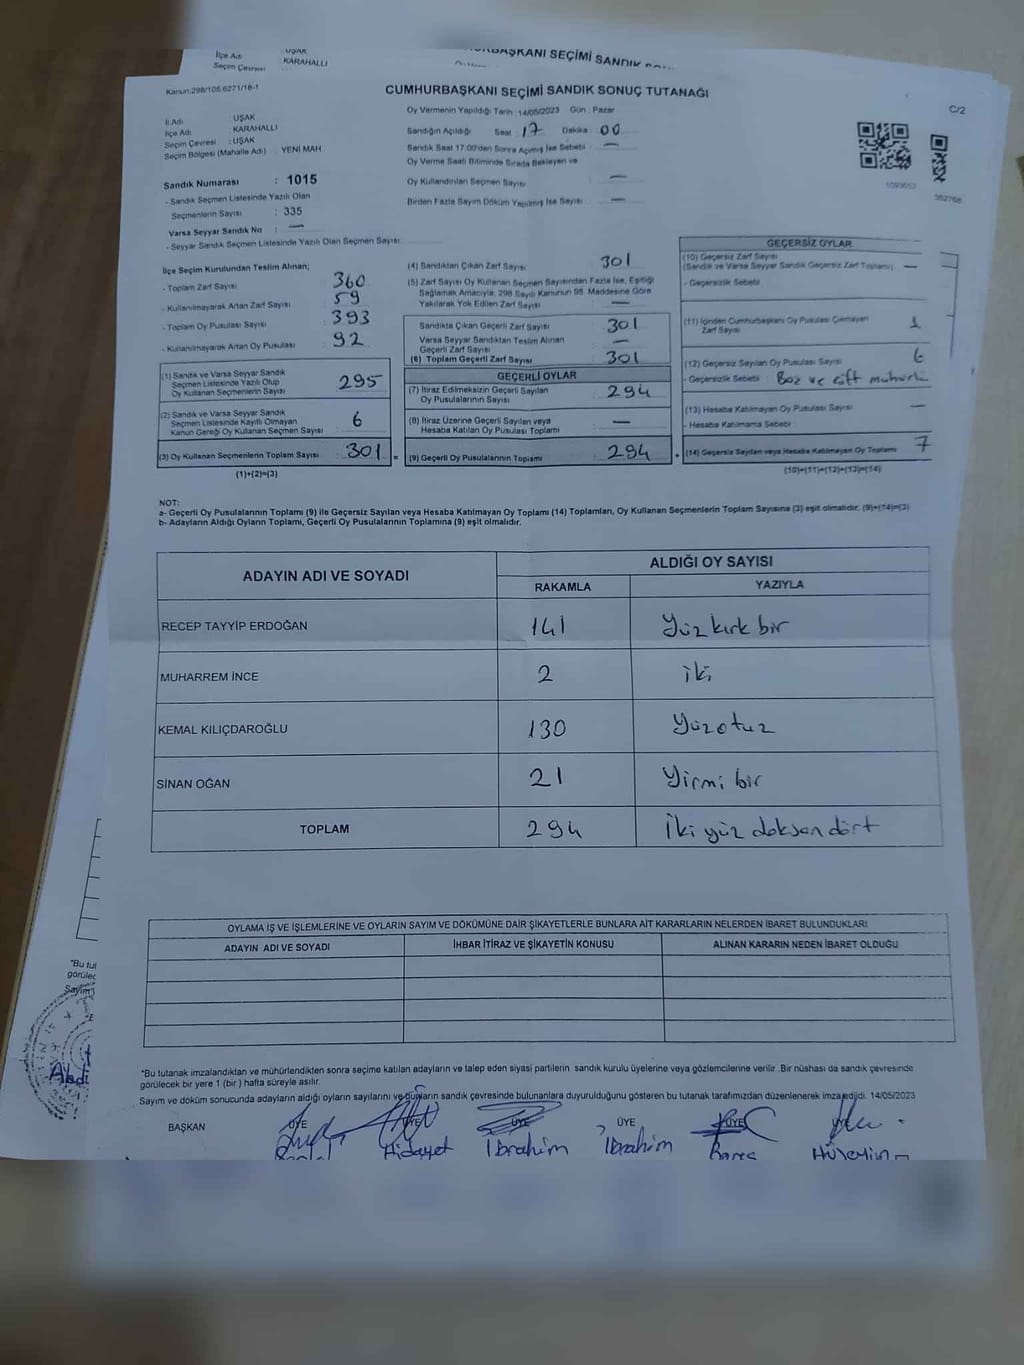 İlçe Adı UŞAK
Seçim Çevresi KARAHALLI
BAŞKANI SEÇİMİ SANDIK
Kanun:298/105,6271/18-1
CUMHURBAŞKANI SEÇİMİ SANDIK SONUÇ TUTANAĞI
C/2
Oy Vermenin Yapıldığı Tarih : 14/05/2023 Gün : Pazar
İl Adı UŞAK
İlçe Adı KARAHALLI
Seçim Çevresi : UŞAK
Seçim Bölgesi (Mahalle Adı) : YENİ MAH
Sandığın Açıldığı Saat 17 Dakika 00
Sandık Saat 17.00'den Sonra Açılmış İse Sebebi : —
Oy Verme Saati Bitiminde Sırada Bekleyen ve
Oy Kullandırılan Seçmen Sayısı —
Birden Fazla Sayım Döküm Yapılmış İse Sayısı —
Sandık Numarası : 1015
- Sandık Seçmen Listesinde Yazılı Olan
Seçmenlerin Sayısı : 335
Varsa Seyyar Sandık No : —
- Seyyar Sandık Seçmen Listesinde Yazılı Olan Seçmen Sayısı
İlçe Seçim Kurulundan Teslim Alınan;
- Toplam Zarf Sayısı : 360
- Kullanılmayarak Artan Zarf Sayısı : 59
- Toplam Oy Pusulası Sayısı : 393
- Kullanılmayarak Artan Oy Pusulası : 92
(1) Sandık ve Varsa Seyyar Sandık
Seçmen Listesinde Yazılı Olup
Oy Kullanan Seçmenlerin Sayısı 295
(2) Sandık ve Varsa Seyyar Sandık
Seçmen Listesinde Kayıtlı Olmayan
Kanun Gereği Oy Kullanan Seçmen Sayısı 6
(3) Oy Kullanan Seçmenlerin Toplam Sayısı : 301
(1)+(2)=(3)
(4) Sandıktan Çıkan Zarf Sayısı 301
(5) Zarf Sayısı Oy Kullanan Seçmen Sayısından Fazla İse, Eşitliği
Sağlamak Amacıyla, 298 Sayılı Kanunun 98. Maddesine Göre
Yakılarak Yok Edilen Zarf Sayısı —
Sandıkta Çıkan Geçerli Zarf Sayısı 301
Varsa Seyyar Sandıktan Teslim Alınan
Geçerli Zarf Sayısı —
(6) Toplam Geçerli Zarf Sayısı 301
GEÇERLİ OYLAR
(7) İtiraz Edilmeksizin Geçerli Sayılan
Oy Pusulalarının Sayısı 294
(8) İtiraz Üzerine Geçerli Sayılan veya
Hesaba Katılan Oy Pusulası Toplamı —
= (9) Geçerli Oy Pusulalarının Toplamı 294
GEÇERSİZ OYLAR
(10) Geçersiz Zarf Sayısı
(Sandık ve Varsa Seyyar Sandık Geçersiz Zarf Toplamı) —
- Geçersizlik Sebebi
(11) İçinden Cumhurbaşkanı Oy Pusulası Çıkmayan
Zarf Sayısı 1
(12) Geçersiz Sayılan Oy Pusulası Sayısı 6
- Geçersizlik Sebebi : Boş ve çift mühürlü
(13) Hesaba Katılmayan Oy Pusulası Sayısı —
- Hesaba Katılmama Sebebi
+ (14) Geçersiz Sayılan veya Hesaba Katılmayan Oy Toplamı 7
(10)+(11)+(12)+(13)=(14)
NOT:
a- Geçerli Oy Pusulalarının Toplamı (9) ile Geçersiz Sayılan veya Hesaba Katılmayan Oy Toplamı (14) Toplamları, Oy Kullanan Seçmenlerin Toplam Sayısına (3) eşit olmalıdır. (9)+(14)=(3)
b- Adayların Aldığı Oyların Toplamı, Geçerli Oy Pusulalarının Toplamına (9) eşit olmalıdır.
ADAYIN ADI VE SOYADI ALDIĞI OY SAYISI
RAKAMLA YAZIYLA
RECEP TAYYİP ERDOĞAN 141 Yüz kırk bir
MUHARREM İNCE 2 iki
KEMAL KILIÇDAROĞLU 130 Yüzotuz
SİNAN OĞAN 21 Yirmi bir
TOPLAM 294 İki yüz doksan dört
OYLAMA İŞ VE İŞLEMLERİNE VE OYLARIN SAYIM VE DÖKÜMÜNE DAİR ŞİKAYETLERLE BUNLARA AİT KARARLARIN NELERDEN İBARET BULUNDUKLARI
ADAYIN ADI VE SOYADI İHBAR İTİRAZ VE ŞİKAYETİN KONUSU ALINAN KARARIN NEDEN İBARET OLDUĞU
"Bu tut
görülec
Sayım
Abdi
"Bu tutanak imzalandıktan ve mühürlendikten sonra seçime katılan adayların ve talep eden siyasi partilerin sandık kurulu üyelerine veya gözlemcilerine verilir. Bir nüshası da sandık çevresinde
görülecek bir yere 1 (bir) hafta süreyle asılır.
Sayım ve döküm sonucunda adayların aldığı oyların sayılarını ve bunların sandık çevresinde bulunanlara duyurulduğunu gösteren bu tutanak tarafımızdan düzenlenerek imza edildi. 14/05/2023
BAŞKAN ÜYE ÜYE ÜYE ÜYE ÜYE ÜYE
Hidayet İbrahim İbrahim Hüseyin